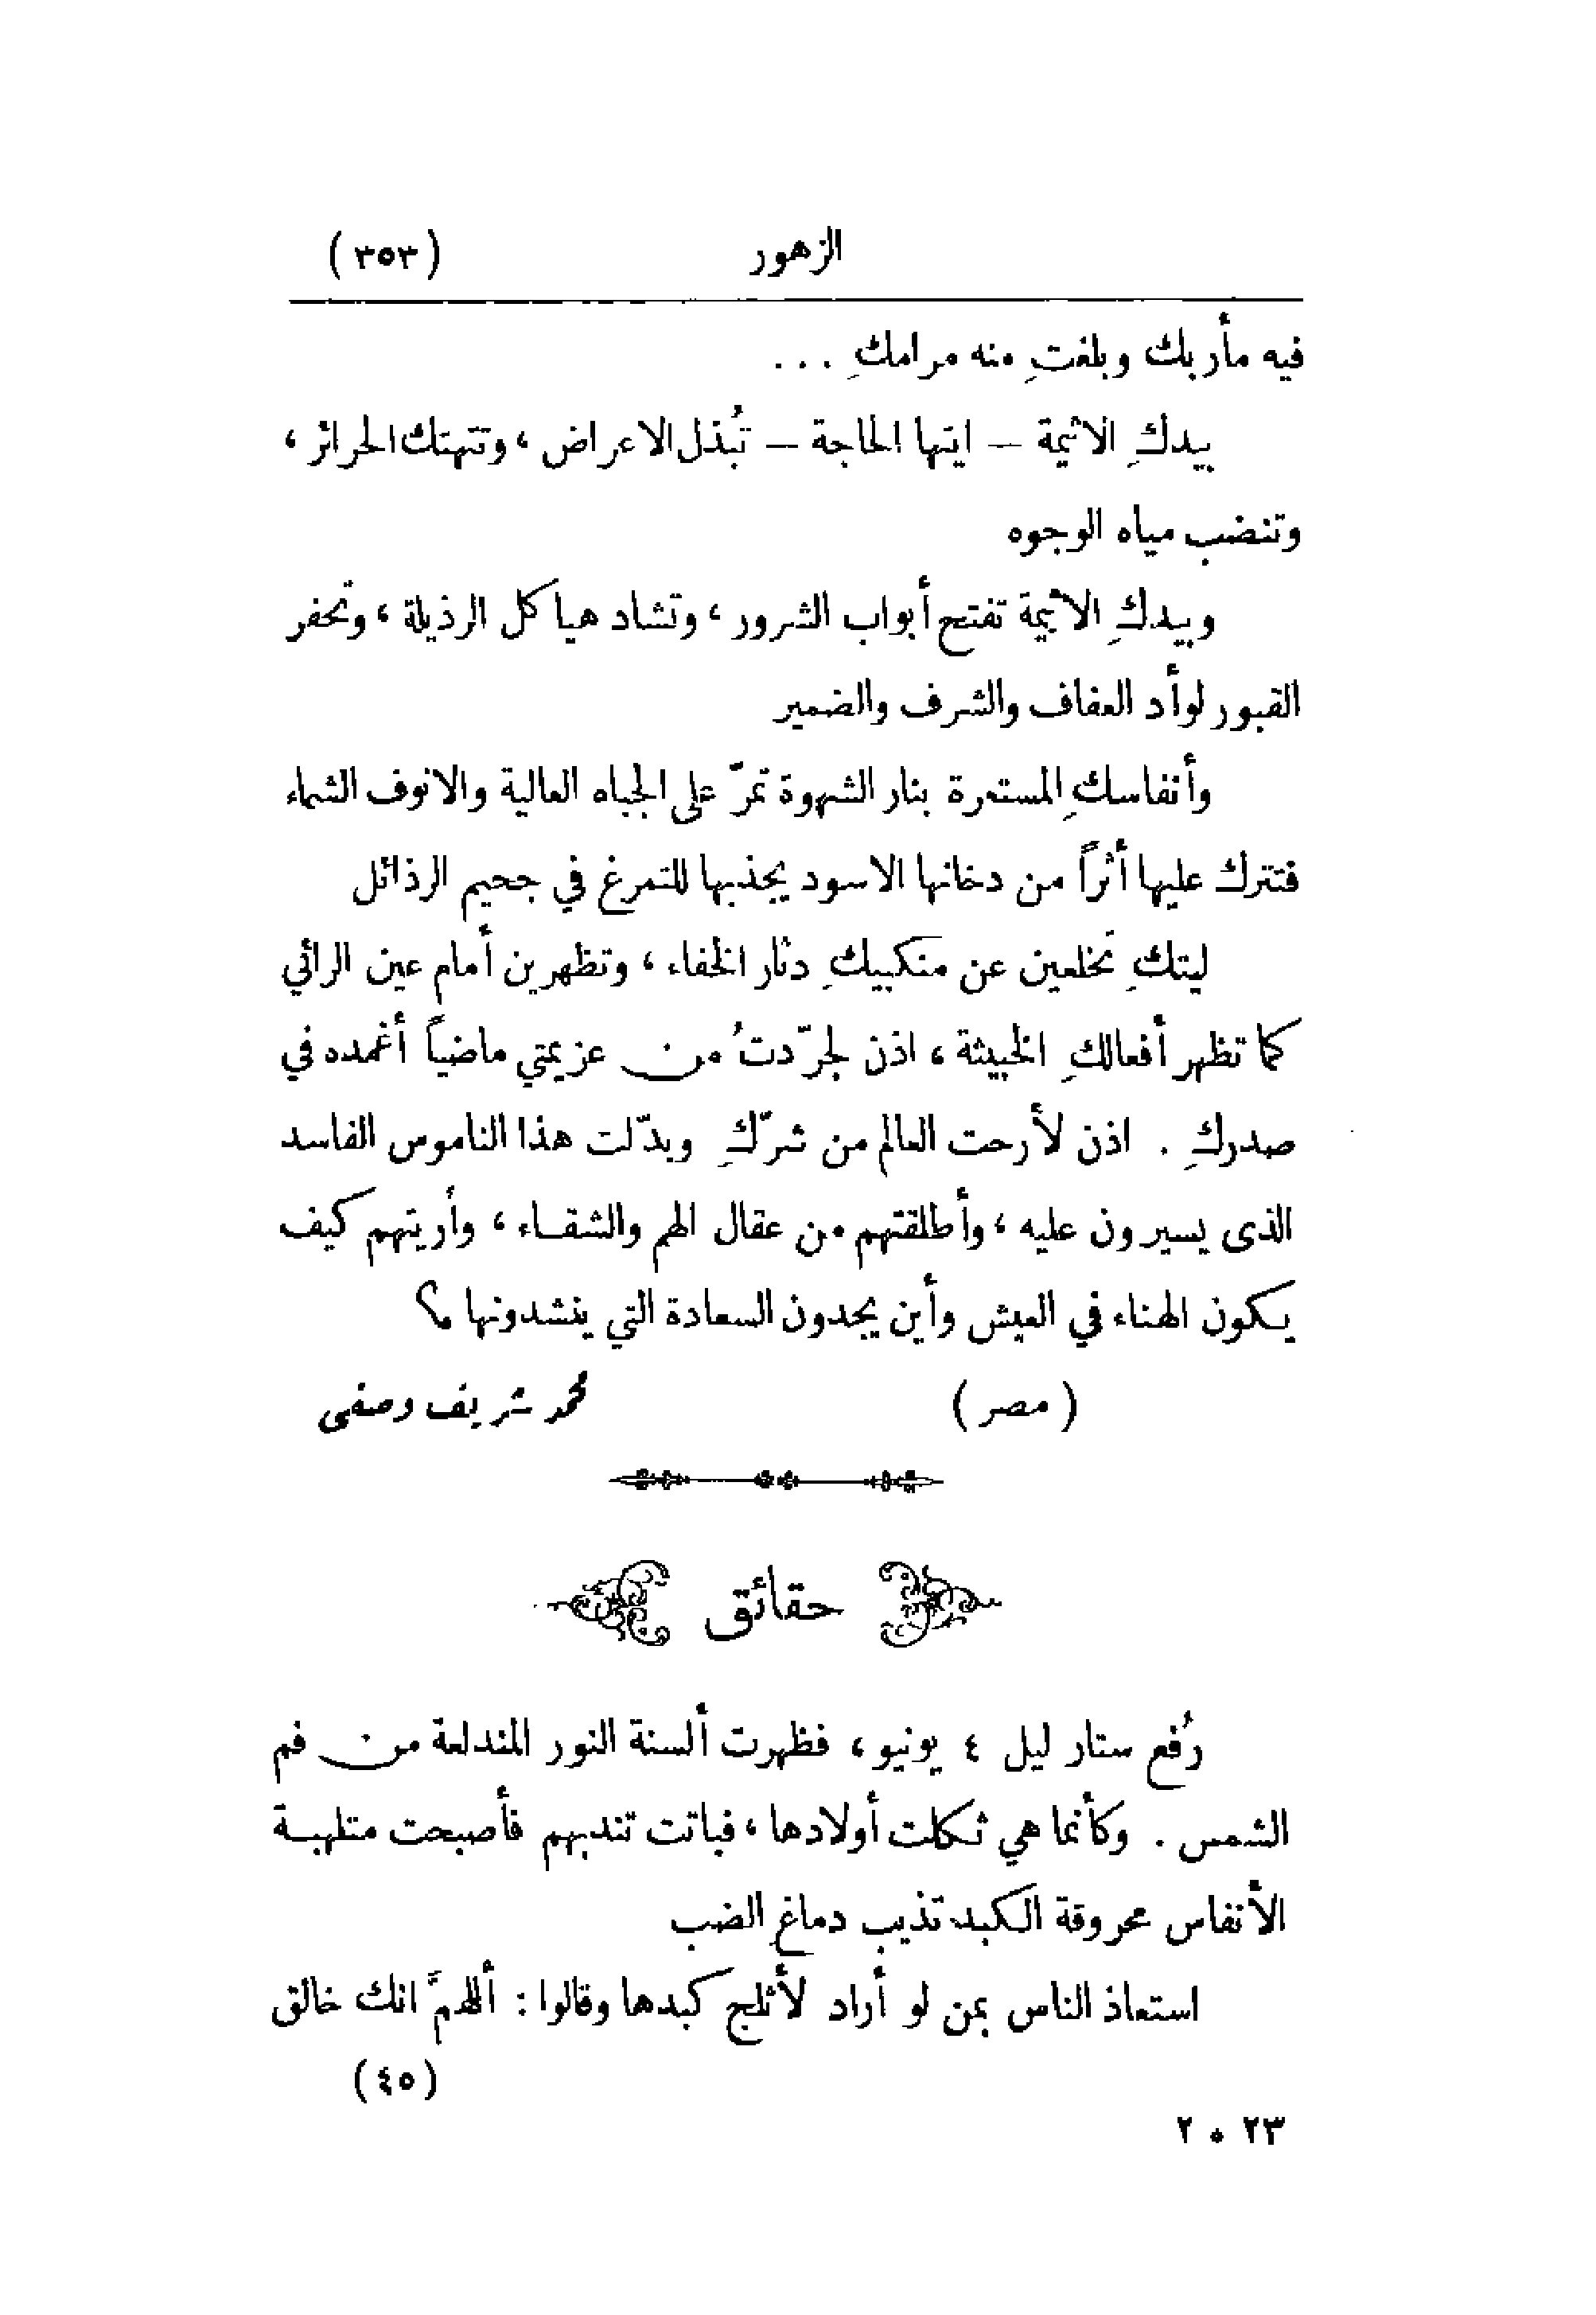 الزهور (٣٥٣)
فيه مأربك وبلغتِ منه مرامكِ ...
بيدكِ الاثيمة – ايتها الحاجة – تُبذل الاعراض ، وتتهتك الحرائر ،
وتنضب مياه الوجوه
وبيدكِ الاثيمة تفتح أبواب الشرور ، وتشاد هياكل الرذيلة ، وتحفر
القبور لوأد العفاف والشرف والضمير
وأنفاسكِ المستعرة بنار الشهوة تمرّ على الجباه العالية والانوف الشماء
فتترك عليها أثراً من دخانها الاسود يجذبها للتمرغ في جحيم الرذائل
ليتكِ تخلعين عن منكبيكِ دثار الخفاء ، وتظهرين أمام عين الرائي
كما تظهر أفعالكِ الخبيثة ، اذن لجرّدتُ من عزيمتي ماضياً أغمده في
صدركِ . اذن لأرحت العالم من شرّكِ وبدّلت هذا الناموس الفاسد
الذى يسيرون عليه ، وأطلقتهم من عقال الهم والشقاء ، وأريتهم كيف
يكون الهناء في العيش وأين يجدون السعادة التي ينشدونها ؟
(مصر) محمد شريف وصفى
حقائق
رُفع ستار ليل ٤ يونيو ، فظهرت ألسنة النور المندلعة من فم
الشمس . وكأنما هي ثكلت أولادها ، فباتت تندبهم فأصبحت متلهبة
الأنفاس محروقة الكبد تذيب دماغ الضب
استعاذ الناس بمن لو أراد لأثلج كبدها وقالوا : أللهمَّ انك خالق
(٤٥)
٢٣ * ٢